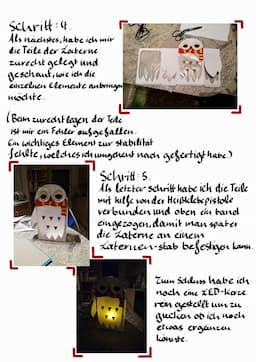 Schritt: 4.
Als nächstes, habe ich mir
die Teile der Laterne
zurecht gelegt und
geschaut, wie ich die
einzelnen Elemente anbringen
möchte.
(Beim zurechtlegen der Teile
ist mir ein Fehler aufgefallen.
Ein wichtiges Element zur stabilität
fehlte, welches ich umgehent nach gefertigt habe.)
Schritt: 5.
Als letzter Schritt habe ich die Teile
mit hilfe von der Heißklebepistolle
verbunden und oben ein band
eingezogen, damit man später
die Laterne an einem
Laternen-stab befestigen kann.
Zum Schluss habe ich
noch eine LED-Kerze
rein gestellt um zu
gucken ob ich noch
etwas ergänzen
könnte.